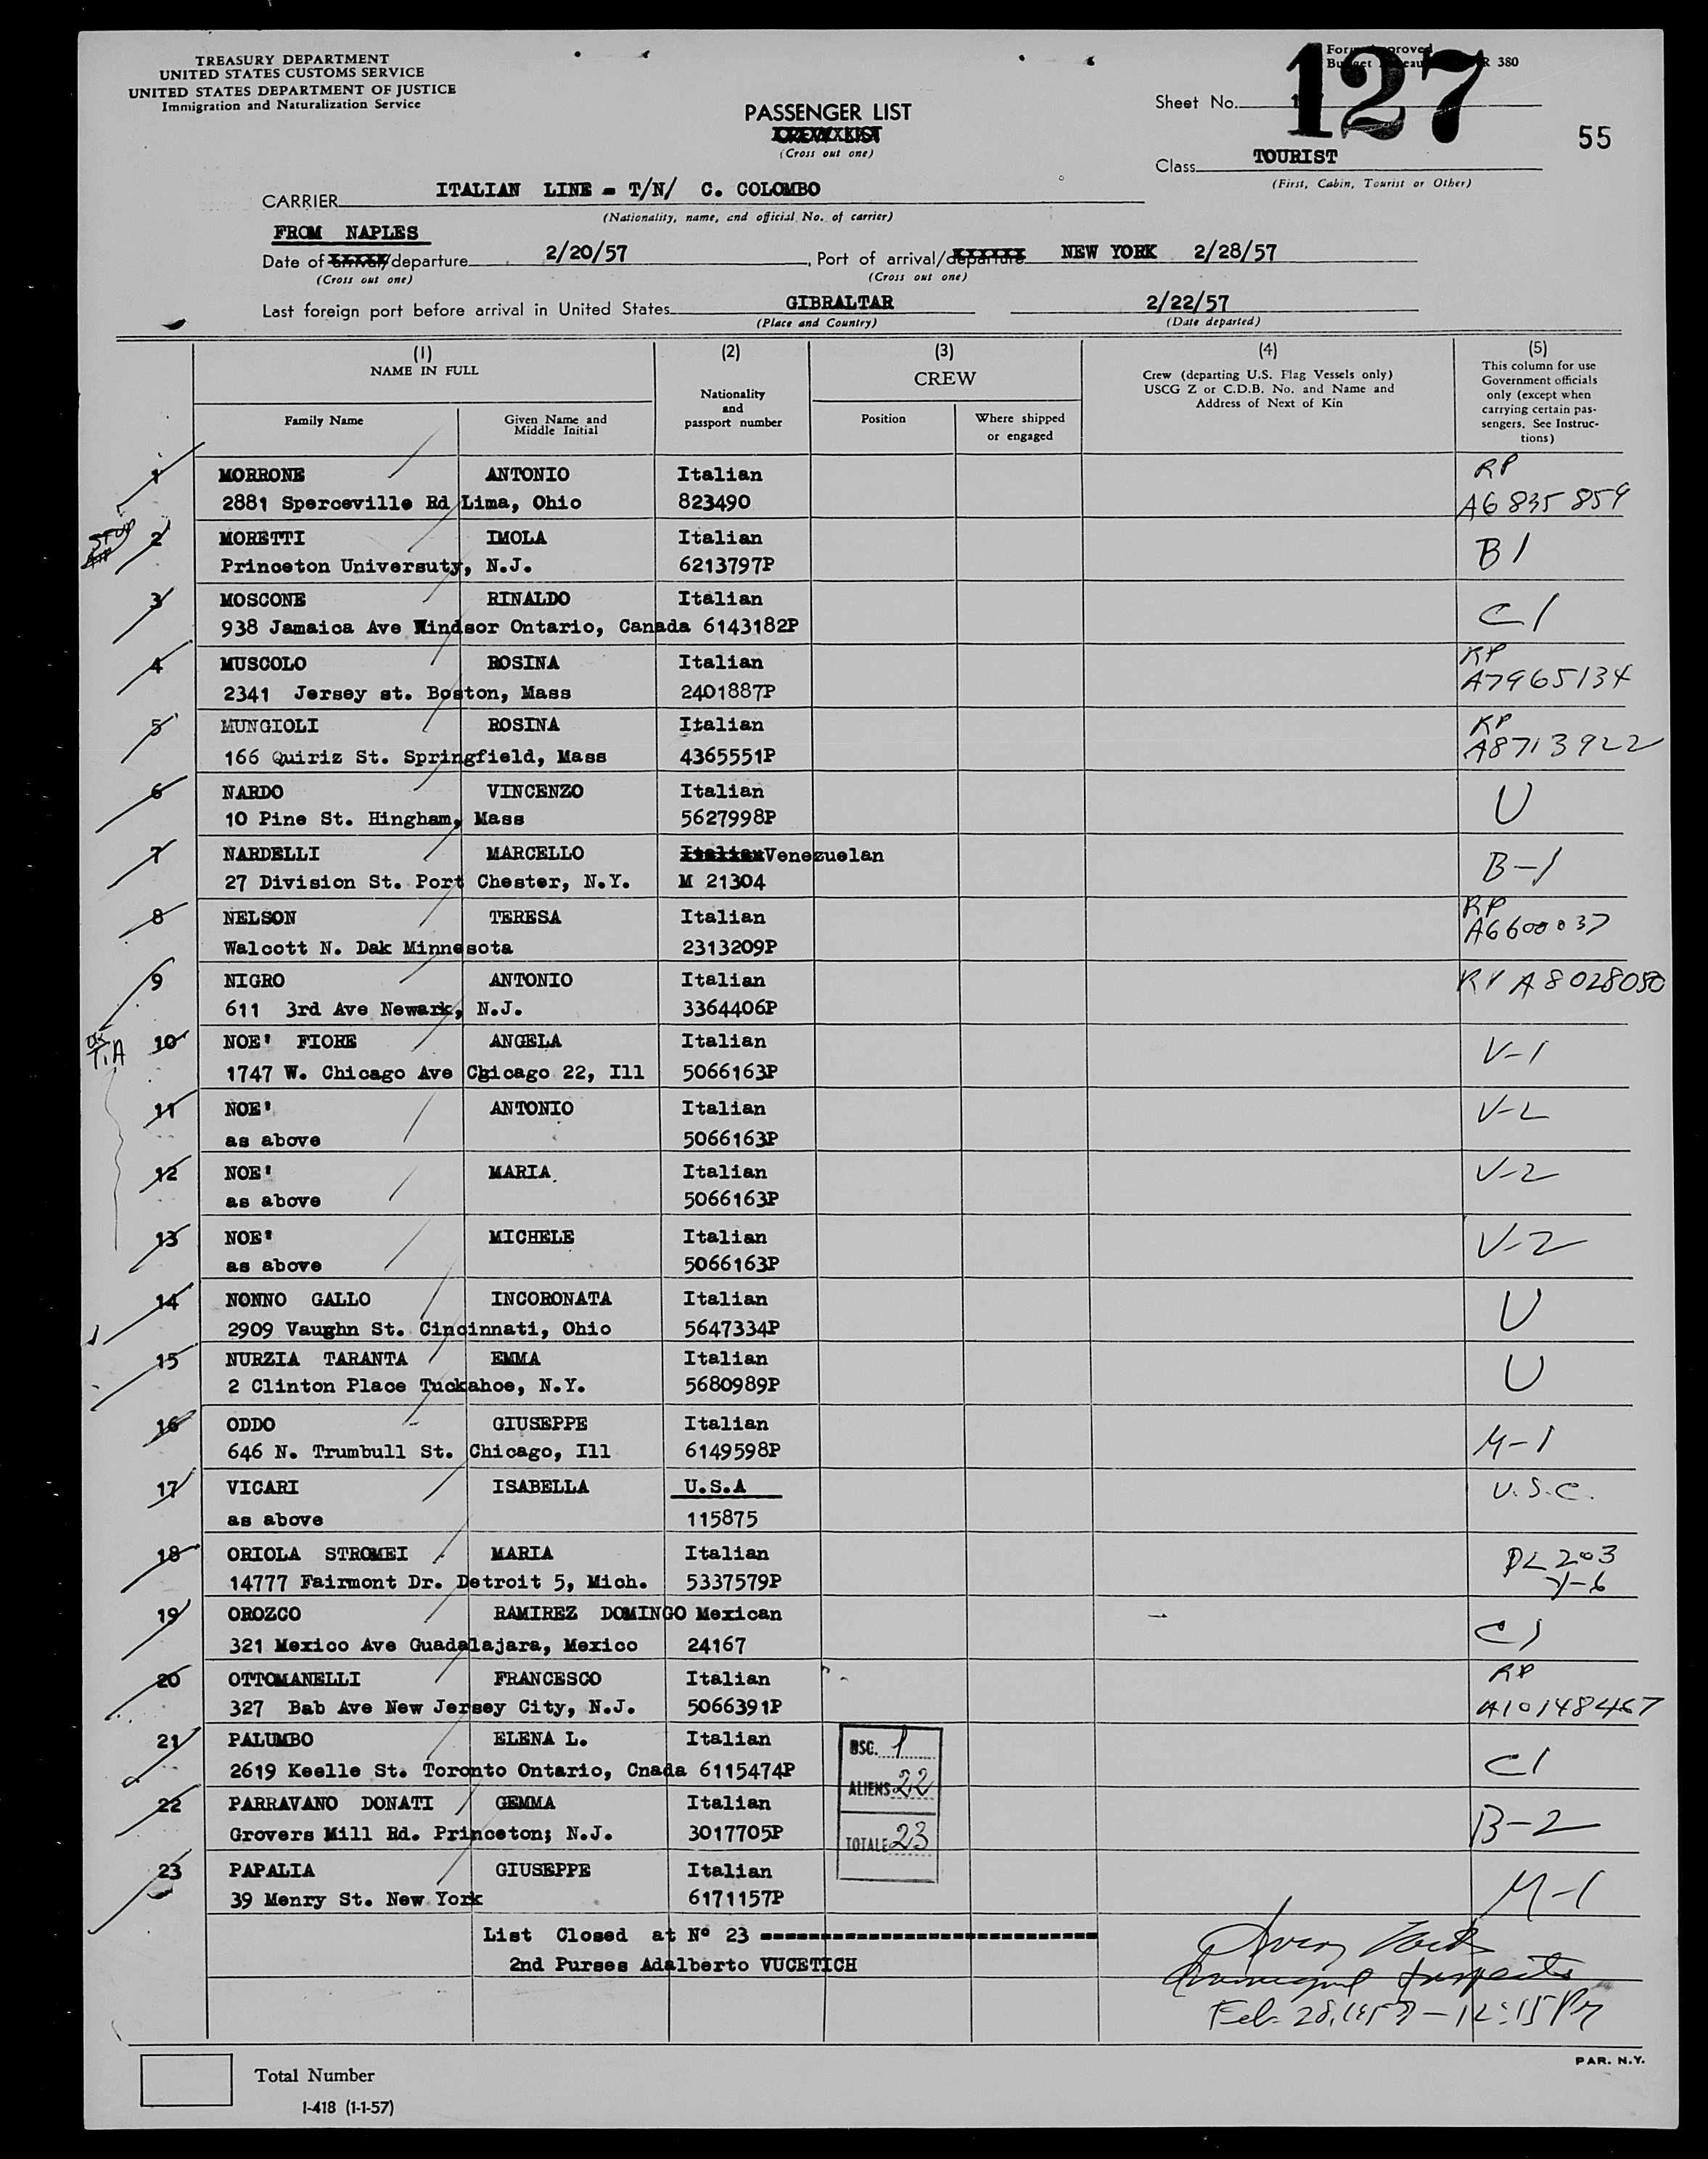 TREASURY DEPARTMENT
UNITED STATES CUSTOMS SERVICE
UNITED STATES DEPARTMENT OF JUSTICE
Immigration and Naturalization Service
PASSENGER LIST
CREW LIST
(Cross out one)
Form Approved
380
Sheet No.
127
55
Class TOURIST
(First, Cabin, Tourist or Other)
CARRIER ITALIAN LINE - T/N/ C. COLOMBO
(Nationality, name, and official No. of carrier)
FROM NAPLES
Date of arrival/departure 2/20/57, Port of arrival/departure NEW YORK 2/28/57
(Cross out one) (Cross out one)
Last foreign port before arrival in United States GIBRALTAR 2/22/57
(Place and Country) (Date departed)
(1) (2) (3) (4) (5)
NAME IN FULL
Family Name
Given Name and Middle Initial
Nationality and passport number
CREW
Position
Where shipped or engaged
Crew (departing U.S. Flag Vessels only)
USCG Z or C.D.B. No. and Name and
Address of Next of Kin
This column for use
Government officials
only (except when
carrying certain pas-
sengers. See Instruc-
tions)
1 MORRONE ANTONIO Italian RP
2881 Sperceville Rd Lima, Ohio 823490 A6 835 859
2 MORETTI IMOLA Italian B1
Princeton Universuty, N.J. 6213797P
3 MOSCONE RINALDO Italian C1
938 Jamaica Ave Windsor Ontario, Canada 6143182P
4 MUSCOLO ROSINA Italian RP
2341 Jersey st. Boston, Mass 2401887P A7965134
5 MUNGIOLI ROSINA Italian RP
166 Quiriz St. Springfield, Mass 4365551P A8713922
6 NARDO VINCENZO Italian U
10 Pine St. Hingham, Mass 5627998P
7 NARDELLI MARCELLO Italian Venezuelan B-1
27 Division St. Port Chester, N.Y. M 21304
8 NELSON TERESA Italian RP
Walcott N. Dak Minnesota 2313209P A6600037
9 NIGRO ANTONIO Italian RP A8028050
611 3rd Ave Newark, N.J. 3364406P
T.A
10 NOE' FIORE ANGELA Italian V-1
1747 W. Chicago Ave Chicago 22, Ill 5066163P
11 NOE' ANTONIO Italian V-2
as above 5066163P
12 NOE' MARIA Italian V-2
as above 5066163P
13 NOE' MICHELE Italian V-2
as above 5066163P
14 NONNO GALLO INCORONATA Italian U
2909 Vaughn St. Cincinnati, Ohio 5647334P
15 NURZIA TARANTA EMMA Italian U
2 Clinton Place Tuckahoe, N.Y. 5680989P
16 ODDO GIUSEPPE Italian M-1
646 N. Trumbull St. Chicago, Ill 6149598P
17 VICARI ISABELLA U.S.A U.S.C.
as above 115875
18 ORIOLA STROMEI MARIA Italian PL 203
14777 Fairmont Dr. Detroit 5, Mich. 5337579P
19 OROZCO RAMIREZ DOMINGO Mexican C1
321 Mexico Ave Guadalajara, Mexico 24167
20 OTTOMANELLI FRANCESCO Italian RP
327 Bab Ave New Jersey City, N.J. 5066391P A10148467
21 PALUMBO ELENA L. Italian C1
2619 Keelle St. Toronto Ontario, Cnada 6115474P
22 PARRAVANO DONATI GEMMA Italian B-2
Grovers Mill Rd. Princeton; N.J. 3017705P
23 PAPALIA GIUSEPPE Italian M-1
39 Menry St. New York 6171157P
BSC. 1
ALIENS 22
TOTALE 23
List Closed at Nº 23 --------------------------
2nd Purses Adalberto VUCETICH
Feb. 28, 1957 - 12:15 PM
PAR. N.Y.
Total Number
I-418 (1-1-57)